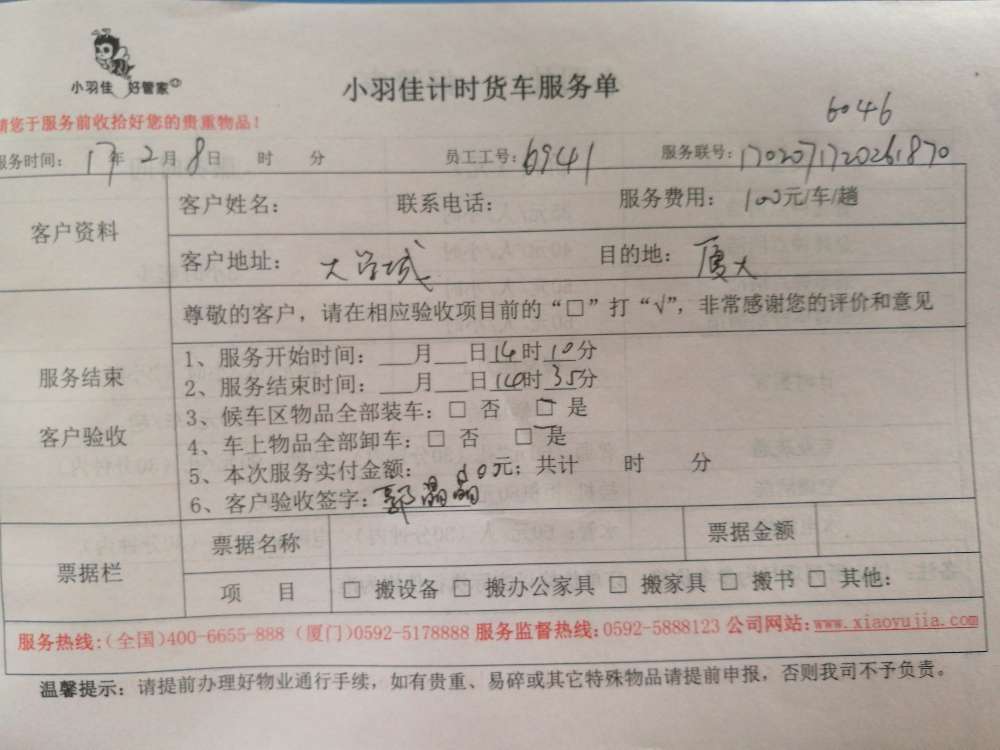 小羽佳 好管家
小羽佳计时货车服务单
6046
请您于服务前收拾好您的贵重物品！
服务时间： 17年2月8日 时 分 员工工号：6941 服务联号：170207172026.1870
客户资料
客户姓名： 联系电话： 服务费用： 100元/车/趟
客户地址： 大学城 目的地： 厦大
尊敬的客户，请在相应验收项目前的“□”打“√”，非常感谢您的评价和意见
服务结束
客户验收
1、服务开始时间： ___月___日14时10分
2、服务结束时间： ___月___日14时35分
3、候车区物品全部装车：□ 否 □ 是
4、车上物品全部卸车：□ 否 □ 是
5、本次服务实付金额： 元；共计 时 分
6、客户验收签字：郭晶晶
票据栏
票据名称 票据金额
项 目 □ 搬设备 □ 搬办公家具 □ 搬家具 □ 搬书 □ 其他：
服务热线：(全国)400-6655-888 (厦门)0592-5178888 服务监督热线：0592-5888123 公司网站：www.xiaoyujia.com
温馨提示：请提前办理好物业通行手续，如有贵重、易碎或其它特殊物品请提前申报，否则我司不予负责。